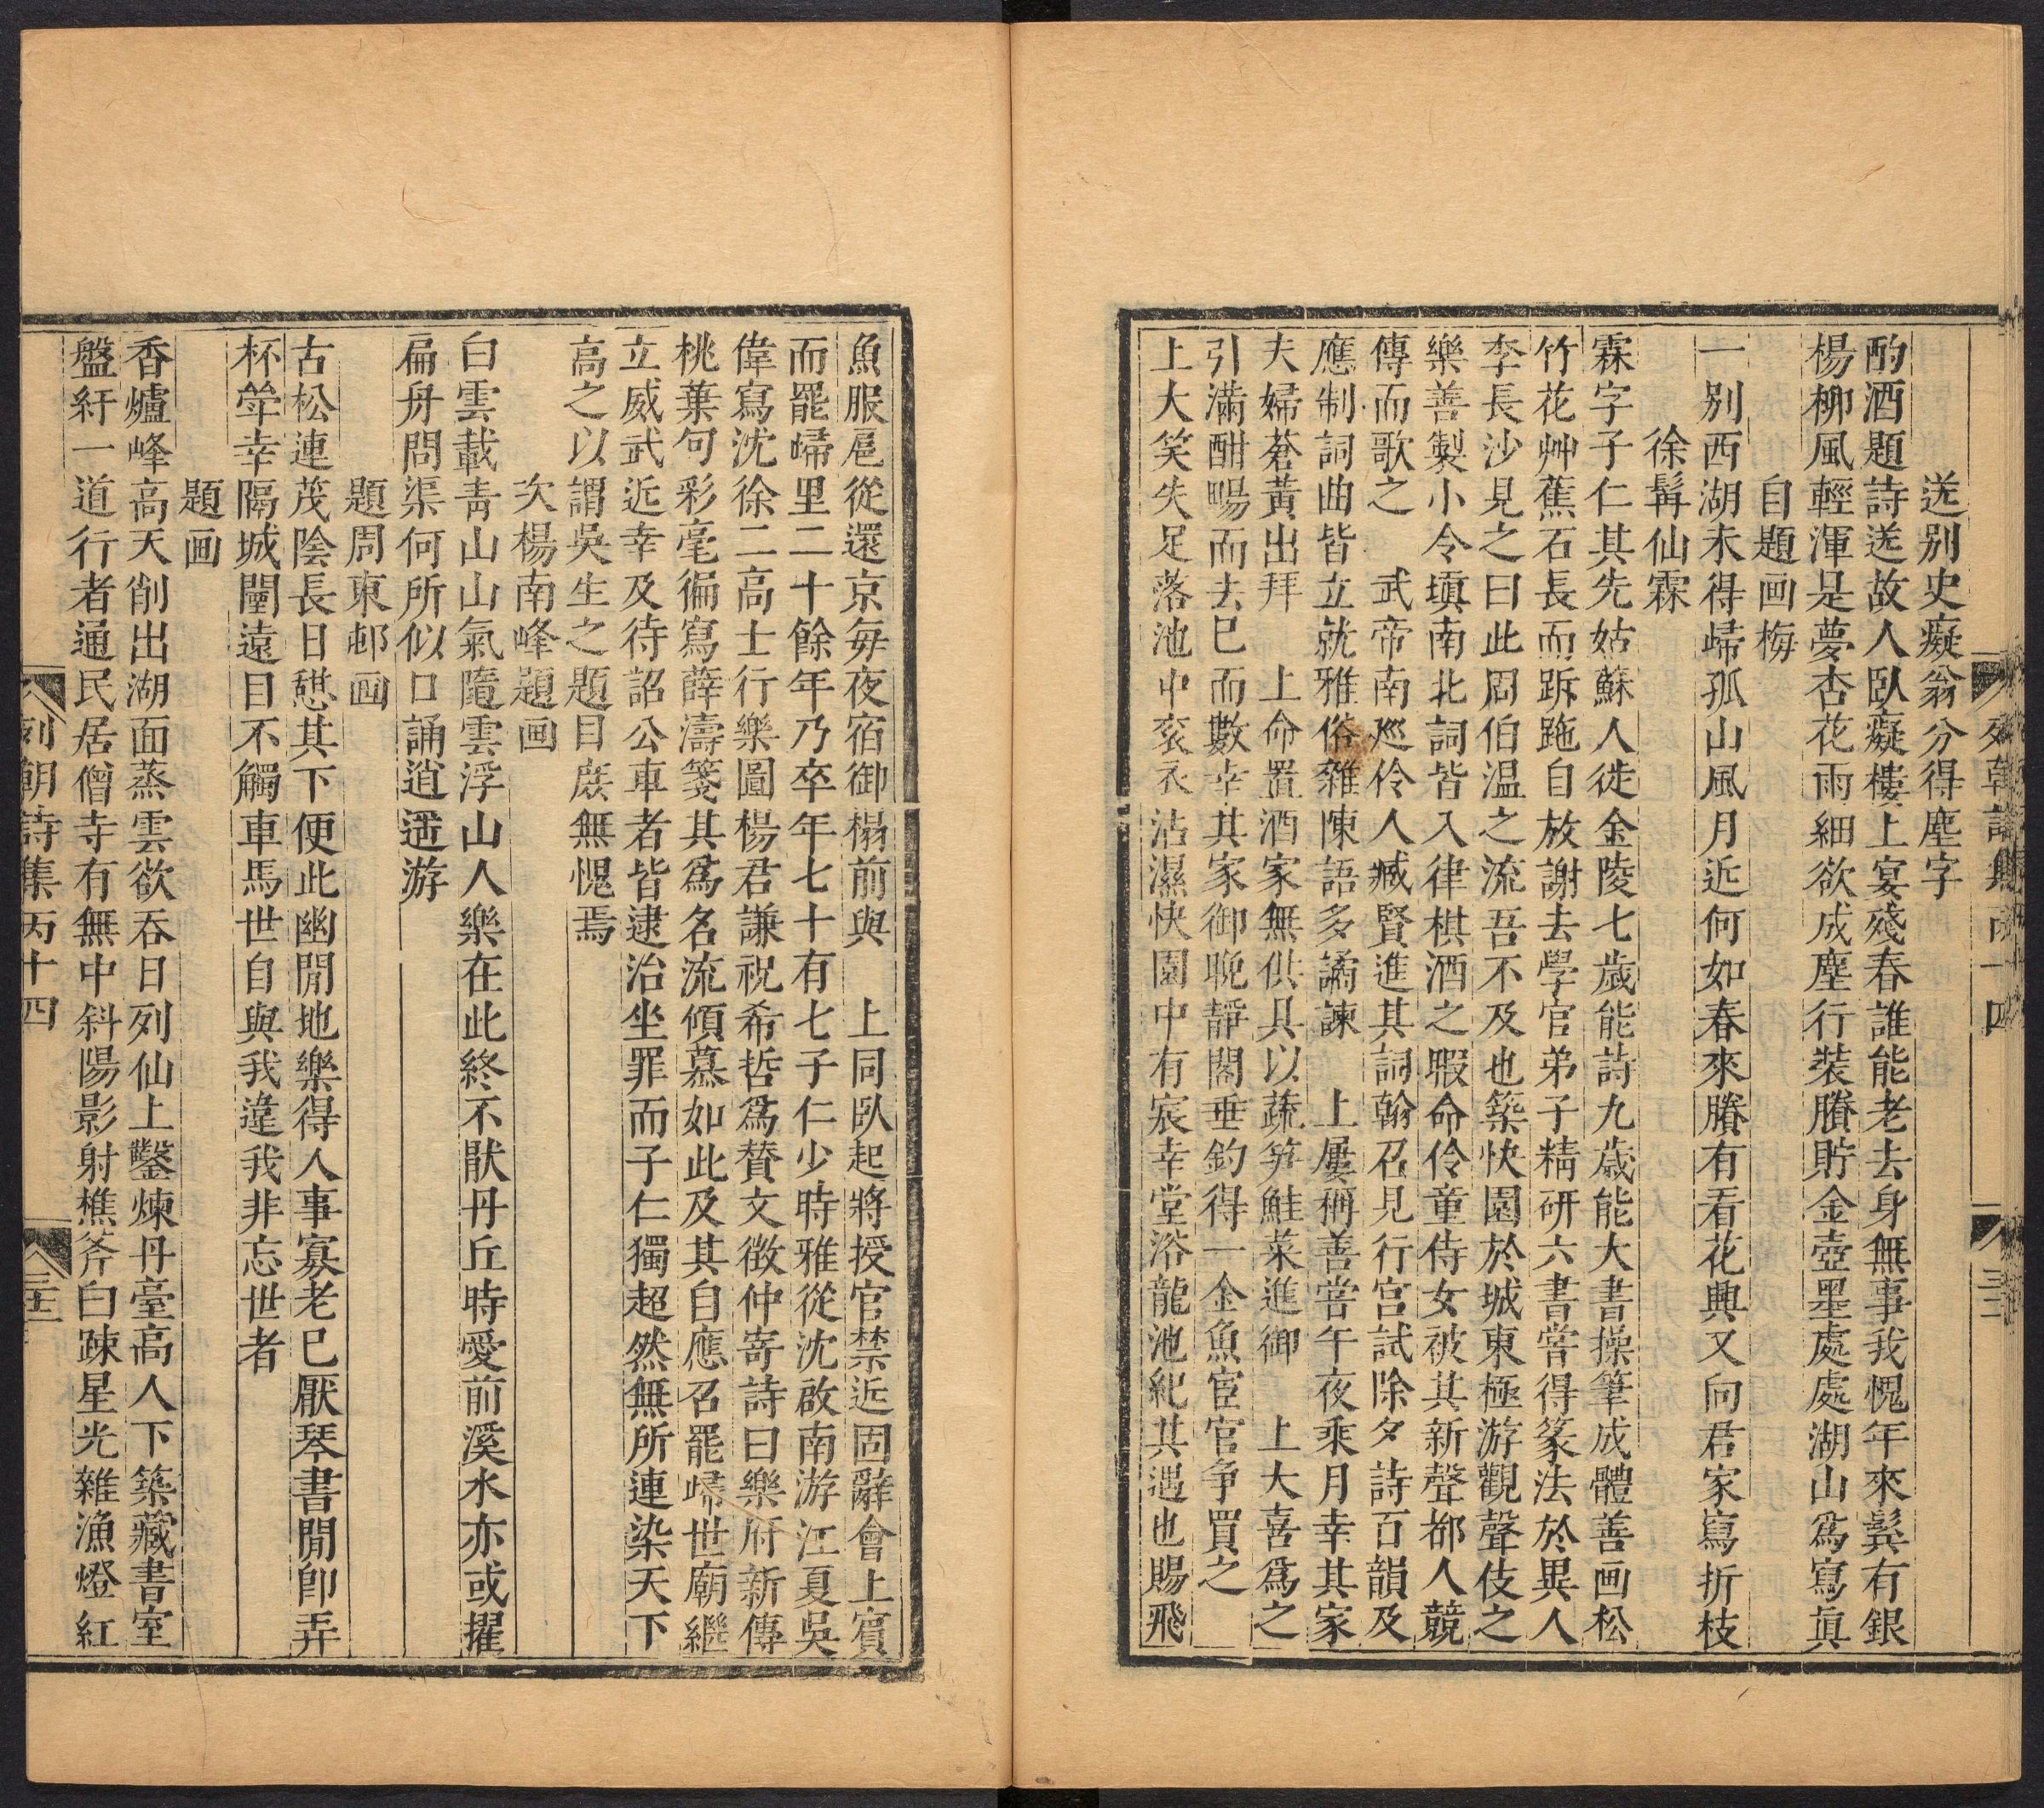 列朝詩集丙十四
三二
送别史癡翁分得塵字
酌酒題詩送故人臥癡樓上宴殘春誰能老去身無事我愧年來鬂有銀
楊柳風輕渾是夢杏花雨細欲成塵行裝賸貯金壺墨處處湖山為寫眞
自題画梅
一别西湖未得歸孤山風月近何如春來賸有看花興又向君家寫折枝
徐髯仙霖
霖字子仁其先姑蘇人徙金陵七歲能詩九歲能大書操筆成體善画松
竹花艸蕉石長而跅跪自放謝去學官弟子精研六書嘗得篆法於異人
李長沙見之曰此周伯温之流吾不及也築快園於城東極游觀聲伎之
樂善製小令塡南北詞皆入律棋酒之暇命伶童侍女被其新聲都人競
傳而歌之　武帝南廵伶人臧賢進其詞翰召見行宮試除夕詩百韻及
應制詞曲皆立就雅俗雜陳語多譎諫　上屢稱善嘗午夜乘月幸其家
夫婦蒼黃出拜　上命置酒家無供具以蔬笋鮭菜進御　上大喜爲之
引滿酣暢而去已而數幸其家御晚靜閣垂釣得一金魚宦官争買之
上大笑失足落池中衮衣沾濕快園中有宸幸堂浴龍池紀其遇也賜飛
魚服扈從還京每夜宿御榻前與　上同臥起將授官禁近固辭會上賓
而罷歸里二十餘年乃卒年七十有七子仁少時雅從沈啟南游江夏吳
偉寫沈徐二高士行樂圖楊君謙祝希哲爲贊文徵仲寄詩曰樂府新傳
桃葉句彩毫徧寫薛濤箋其爲名流傾慕如此及其自應召罷歸世廟繼
立威武近幸及待詔公車者皆逮治坐罪而子仁獨超然無所連染天下
高之以謂吳生之題目庶無愧焉
次楊南峰題画
白雲載靑山山氣隨雲浮山人樂在此終不猒丹丘時愛前溪水亦或擢
扁舟問渠何所似口誦逍遥游
題周東邨画
古松連茂陰長日憇其下便此幽閒地樂得人事寡老已厭琴書閒卽弄
杯斚幸隔城闉遠目不觸車馬世自與我違我非忘世者
題画
香爐峰高天削出湖面蒸雲欲吞日列仙上鑿煉丹臺高人下築藏書室
盤紆一道行者通民居僧寺有無中斜陽影射樵斧白踈星光雜漁燈紅
列朝詩集丙十四